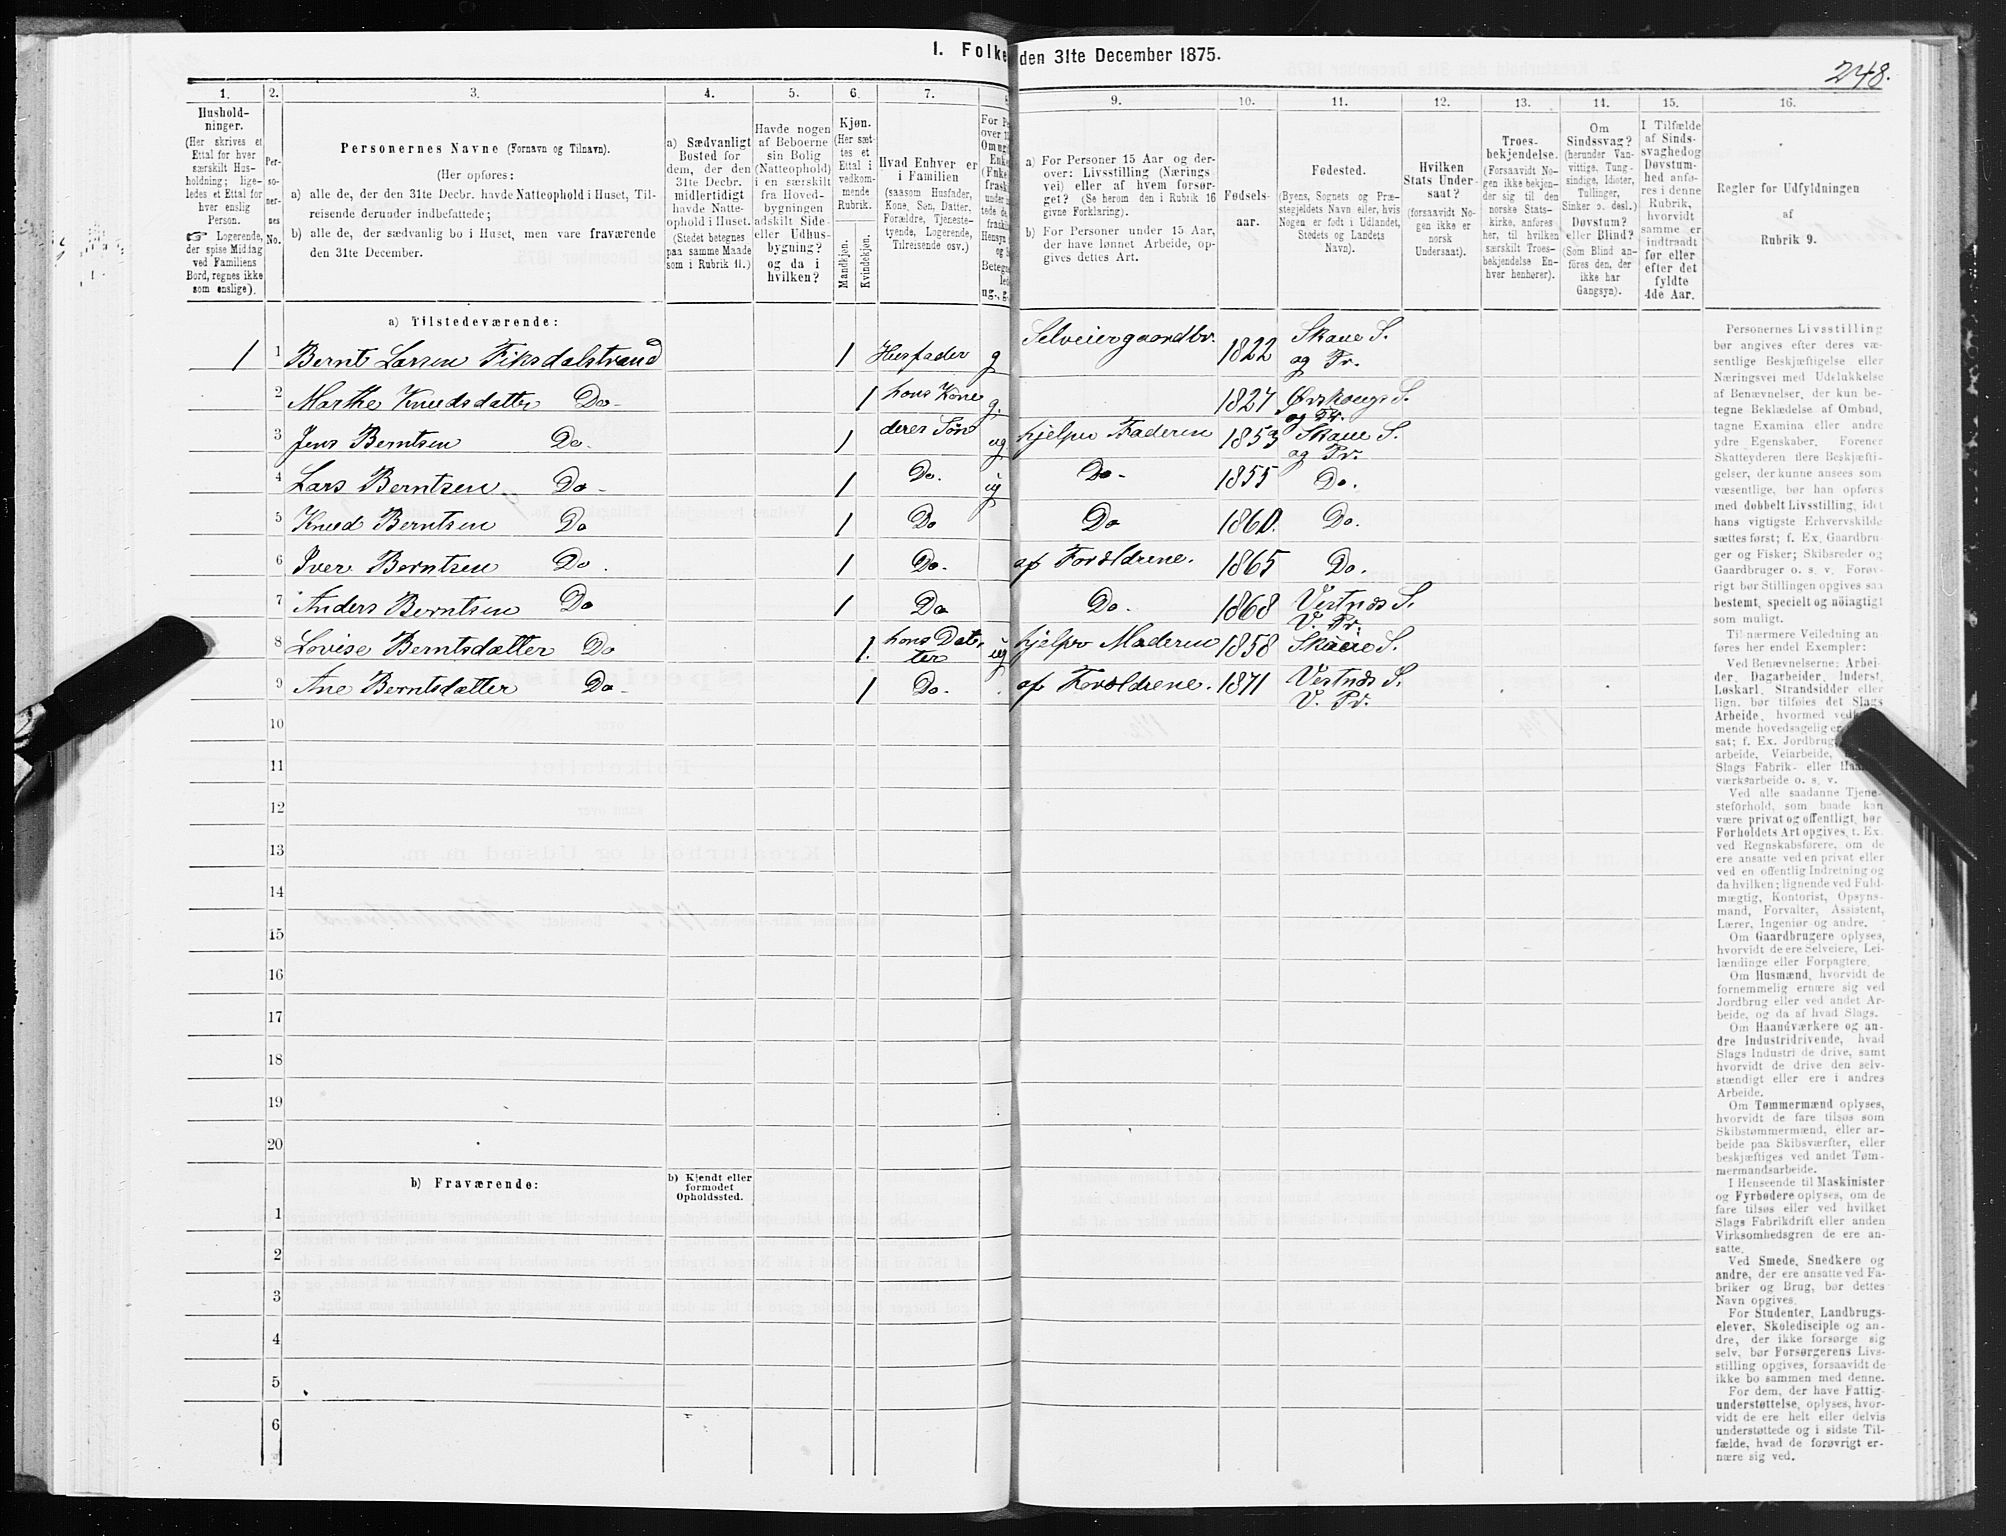 1. Folke den 31te December 1875.
248.
1. 2. 3. 4. 5. 6. 7. 8 9. 10. 11. 12. 13. 14. 15. 16.
Hushold-
ninger.
(Her skrives et
Ettal for hver
særskilt Hus-
holdning; lige-
ledes et Ettal for
hver enslig
Person.
☞ Logerende,
der spise Middag
ved Familiens
Bord, regnes ikke
som enslige).
Per-
so-
ner-
nes
No.
Personernes Navne (Fornavn og Tilnavn).
(Her opføres:
a) alle de, der den 31te Decbr. havde Natteophold i Huset, Til-
reisende derunder indbefattede;
b) alle de, der sædvanlig bo i Huset, men vare fraværende
den 31te December.
a) Sædvanligt
Bosted for
dem, der den
31te Decbr.
midlertidigt
havde Natte-
ophold i Huset.
(Stedet betegnes
paa samme Maade
som i Rubrik 11.)
Havde nogen
af Beboerne
sin Bolig
(Natteophold)
i en særskilt
fra Hoved-
bygningen
adskilt Side-
eller Udhus-
bygning?
og da i
hvilken?
Kjøn.
(Her sæt-
tes et
Ettal i
vedkom-
mende
Rubrik.
Mandkjøn.
Kvindekjøn.
Hvad Enhver er
i Familien
(saasom Husfader,
Kone, Søn, Datter,
Forældre, Tjeneste-
tyende, Logerende,
Tilreisende osv.)
For Pe
over 1
Om ug
Enke
(Enke
fraski
under
tede de
fraski
Hensyn
og
Betegn
led
ug., g.
a) For Personer 15 Aar og der-
over: Livsstilling (Nærings-
vei) eller af hvem forsør-
get? (Se herom den i Rubrik 16
givne Forklaring).
b) For Personer under 15 Aar,
der have lønnet Arbeide, op-
gives dettes Art.
Fødsels-
aar.
Fødested.
(Byens, Sognets og Præ-
stegjeldets Navn eller, hvis
Nogen er født i Udlandet,
Stedets og Landets
Navn).
Hvilken
Stats Under-
saat?
(forsaavidt No-
gen ikke er
norsk
Undersaat).
Troes-
bekjendelse.
(Forsaavidt No-
gen ikke bekjen-
der sig til den
norske Stats-
kirke, anføres
her, til hvilken
særskilt Troes-
bekjendelse En-
hver henhører).
Om
Sindssvag?
(herunder Van-
vittige, Tung-
sindige, Idioter,
Tullinger,
Sinker o. desl.)
Døvstum?
eller Blind?
(Som Blind an-
føres den, der
ikke har
Gangsyn).
I Tilfælde
af Sinds-
svaghed og
Døvstum-
hed anfø-
res i denne
Rubrik,
hvorvidt
samme er
indtraadt
før eller
efter det
fyldte
4de Aar.
Regler for Udfyldningen
af
Rubrik 9.
a) Tilstedeværende:
1 1 Bernt Larsen Fiksdalstrand 1 Husfader g Selveiergaardbr. 1822 Skaue S.
og Pr.
2 Marthe Knudsdatter Do 1 hans Kone g. 1827 Ørskougs S.
og Pr.
3 Jens Berntsen Do. 1 deres Søn ug hjelper Faderen 1853 Skaue S.
og Pr.
4 Lars Berntsen Do 1 Do. ug Do 1855 Do.
5 Knud Berntsen Do 1 Do Do 1860. Do.
6 Iver Berntsen Do. 1 Do. af Forældrene. 1865 Do.
7 Anders Berntsen Do 1 Do Do. 1868 Vestnæs S.
V. Pr.
8 Lovise Berntsdatter Do 1. hans Dat-
ter ug hjelper Moderen 1858 Skaue S.
9 Ane Berntsdatter Do 1 Do. af Forældrene. 1871 Vestnæs S.
V. Pr.
10
11
12
13
14
15
16
17
18
19
20
b) Fraværende:
b) Kjendt eller
formodet
Opholdssted.
1
2
3
4
5
6
Personernes Livsstilling
bør angives efter deres væ-
sentlige Beskjæftigelse eller
Næringsvei med Udelukkelse
af Benævnelser, der kun be-
tegne Beklædelse af Ombud,
tagne Examina eller andre
ydre Egenskaber. Forener
Skatteyderen flere Beskjæfti-
gelser, der kunne ansees som
væsentlige, bør han opføres
med dobbelt Livsstilling, idet
hans vigtigste Erhvervskilde
sættes først; f. Ex. Gaardbru-
ger og Fisker; Skibsreder og
Gaardbruger o. s. v. Forøv-
rigt bør Stillingen opgives saa
bestemt, specielt og nöiagtigt
som muligt.
Til nærmere Veiledning an-
føres her endel Exempler:
Ved Benævnelserne: Arbei-
der, Dagarbeider, Inderst,
Løskarl, Strandsidder eller
lign. bør tilføies det Slags
Arbeide, hvormed ved
mende hovedsagelig er
sat; f. Ex. Jordbrug
arbeide, Veiarbeide,
Slags Fabrik- eller Haa
værksarbeide o. s. v.
Ved alle saadanne Tjene-
steforhold, som baade kan
være privat og offentligt, bør
Forholdets Art opgives, t. Ex.
ved Regnskabsførere, om de
ere ansatte ved en privat eller
ved en offentlig Indretning og
da hvilken; lignende ved Fuld-
mægtig, Kontorist, Opsyns-
mand, Forvalter, Assistent,
Lærer, Ingeniør og andre.
Om Gaardbrugere oplyses,
hvorvidt de ere Selveiere, Lei-
lændinge eller Forpagtere.
Om Husmænd, hvorvidt de
fornemmelig ernære sig ved
Jordbrug eller ved andet Ar-
beide, og da af hvad Slags.
Om Haandværkere og an-
dre Industridrivende, hvad
Slags Industri de drive, samt
hvorvidt de drive den selv-
stændigt eller ere i andres
Arbeide.
Om Tømmermænd oplyses,
hvorvidt de fare tilsøs som
Skibstømmermænd, eller ar-
beide paa Skibsværfter, eller
beskjæftiges ved andet Tøm-
mermandsarbeide.
I Henseende til Maskinister
og Fyrbødere oplyses, om de
fare tilsøs eller ved hvilket
Slags Fabrikdrift eller anden
Virksomhedsgren de ere an-
satte.
Ved Smede, Snedkere og
andre, der ere ansatte ved Fa-
briker og Brug, bør dettes
Navn opgives.
For Studenter, Landbrugs-
elever, Skoledisciple og an-
dre, der ikke forsørge sig
selv, bør Forsørgerens Livs-
stilling opgives, forsaavidt de
ikke bo sammen med denne.
For dem, der have Fattig-
understøttelse, oplyses, hvor-
vidt de ere helt eller delvis
understøttede og i sidste Til-
fælde, hvad de forøvrigt er-
nære sig ved.